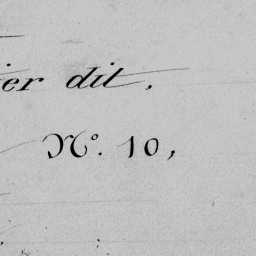 ier dit,
Nº. 10,